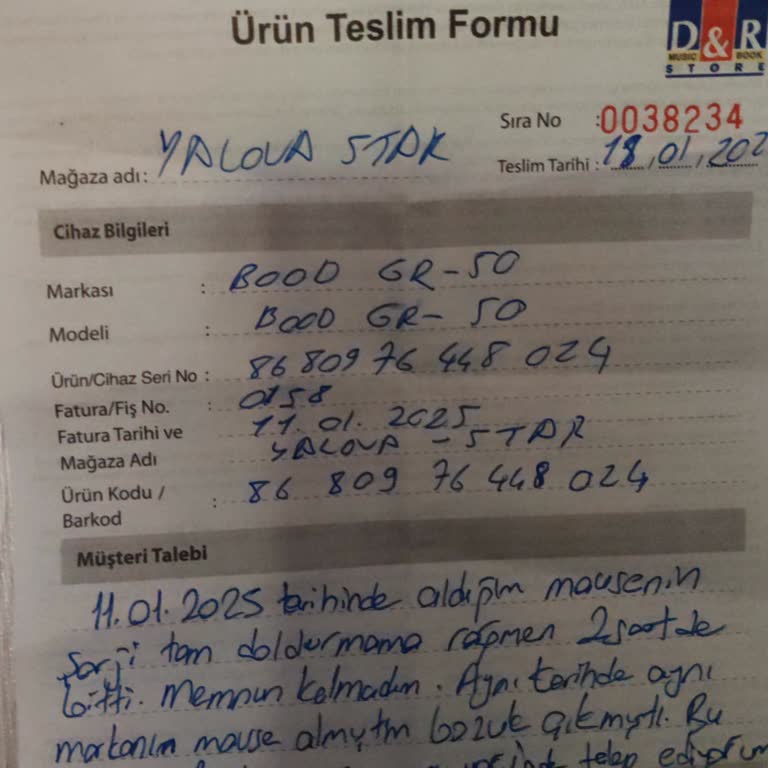 Ürün Teslim Formu
D&R
MUSIC BOOK
STORE
Sıra No :0038234
Mağaza adı: YALOVA STAR
Teslim Tarihi : 18.01.202
Cihaz Bilgileri
Markası : BOOD GR-50
Modeli : BOOD GR-50
Ürün/Cihaz Seri No : 86 809 76 448 024
Fatura/Fiş No. : 0158
Fatura Tarihi ve 11.01.2025
Mağaza Adı YALOVA - STAR
Ürün Kodu /
Barkod : 86 809 76 448 024
Müşteri Talebi
11.01.2025 tarihinde aldığım mousenin
şarjı tam doldurmama rağmen 2 saatde
bitti. Memnun kalmadım. Aynı tarihde aynı
markanın mouse almıştım bozuk çıkmıştı. Bu
talep ediyorum